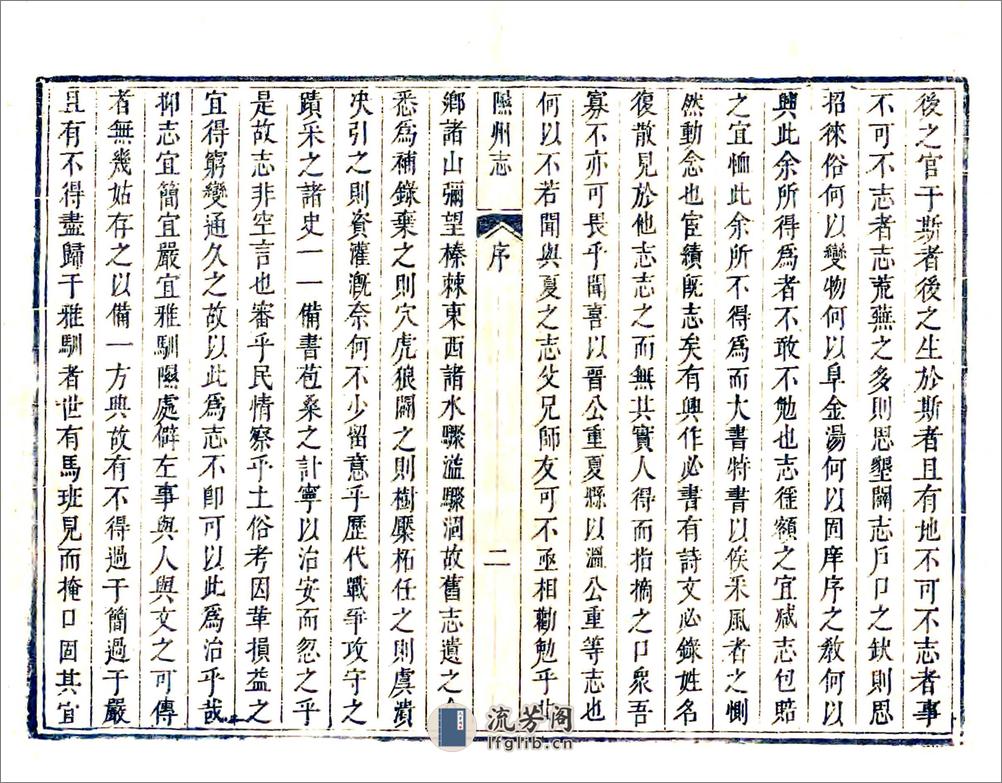 後之官于斯者後之生於斯者且有地不可不志者事
不可不志者志荒蕪之多則思墾闢志戶口之缺則思
招徠俗何以變物何以阜金湯何以固庠序之教何以
興此余所得爲者不敢不勉也志徭額之宜减志包賠
之宜恤此余所不得爲而大書特書以俟采風者之惻
然動念也宦績旣志矣有興作必書有詩文必錄姓名
復散見於他志志之而無其實人得而指摘之口衆吾
寡不亦可畏乎聞喜以晉公重夏縣以溫公重等志也
何以不若聞與夏之志父兄師友可不亟相勸勉乎
隰州志 序 二
鄉諸山彌望榛棘東西諸水驟滥驟涸故舊志遺之
悉爲補錄棄之則穴虎狼闢之則樹檿柘任之則虞潰
决引之則資灌漑奈何不少留意乎歷代戰爭攻守之
蹟采之諸史一一備書苞桑之計寧以治安而忽之乎
是故志非空言也審乎民情察乎土俗考因革損益之
宜得窮變通久之故以此爲志不卽可以此爲治乎哉
抑志宜簡宜嚴宜雅馴隰處僻左事與人與文之可傳
者無幾姑存之以備一方典故有不得過于簡過于嚴
且有不得盡歸于雅馴者世有馬班見而掩口固其宜
流芳阁
lfglib.cn